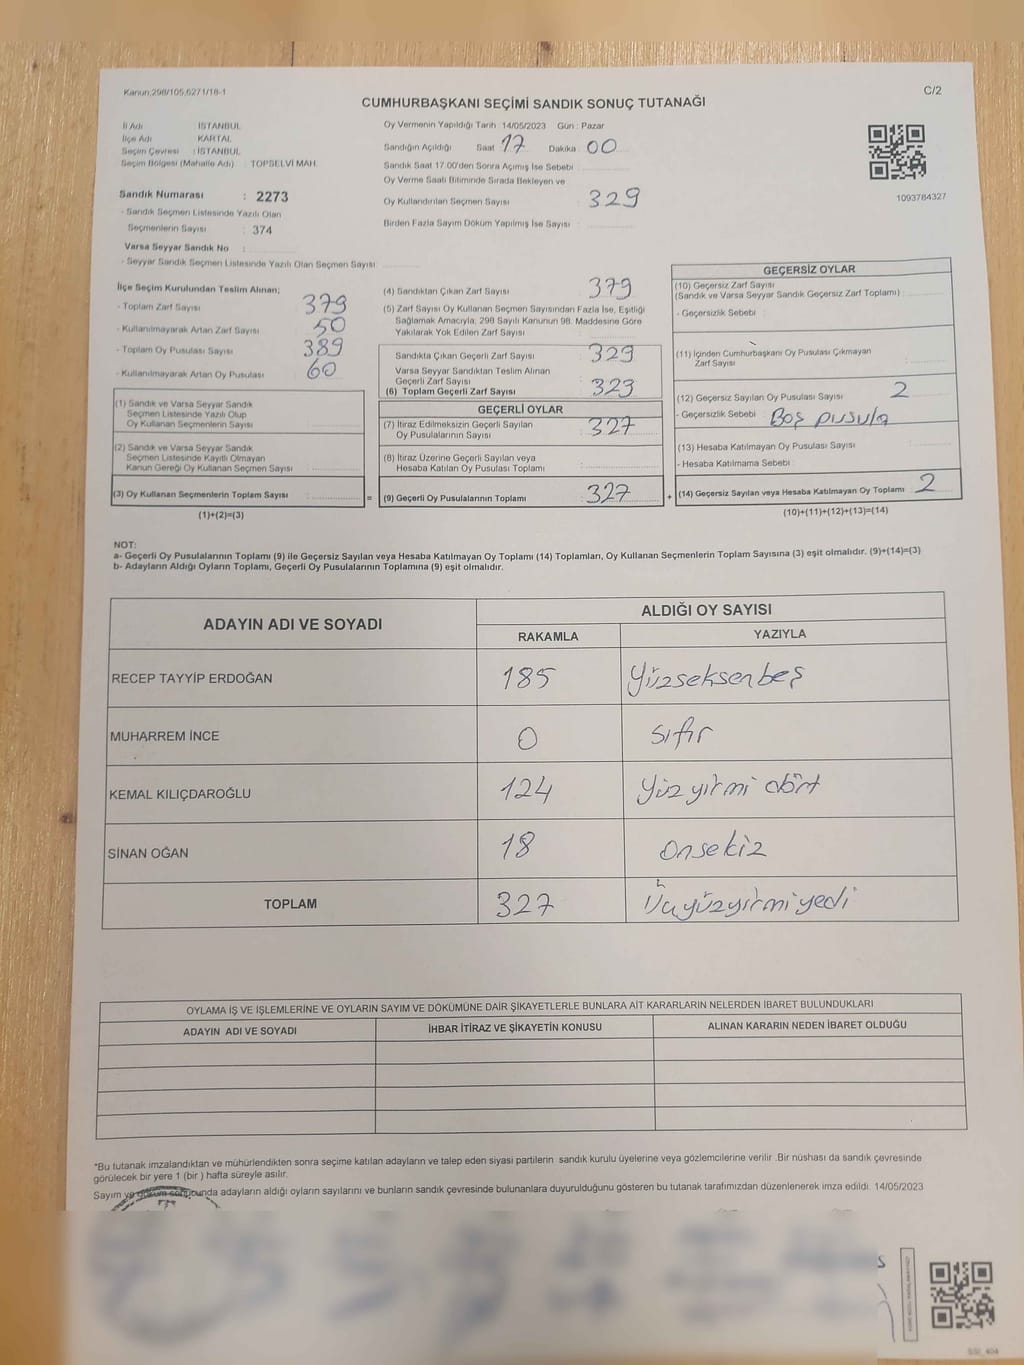 Kanun:298/105,6271/18-1
C/2
CUMHURBAŞKANI SEÇİMİ SANDIK SONUÇ TUTANAĞI
İl Adı : İSTANBUL
İlçe Adı : KARTAL
Seçim Çevresi : İSTANBUL
Seçim Bölgesi (Mahalle Adı) : TOPSELVİ MAH.
Sandık Numarası : 2273
- Sandık Seçmen Listesinde Yazılı Olan
Seçmenlerin Sayısı : 374
Varsa Seyyar Sandık No :
- Seyyar Sandık Seçmen Listesinde Yazılı Olan Seçmen Sayısı:
Oy Vermenin Yapıldığı Tarih : 14/05/2023 Gün : Pazar
Sandığın Açıldığı Saat : 17 Dakika : 00
Sandık Saat 17.00'den Sonra Açımış İse Sebebi :
Oy Verme Saati Bitiminde Sırada Bekleyen ve
Oy Kullandırılan Seçmen Sayısı : 329
Birden Fazla Sayım Döküm Yapılmış İse Sayısı :
1093784327
İlçe Seçim Kurulundan Teslim Alınan;
- Toplam Zarf Sayısı : 379
- Kullanılmayarak Artan Zarf Sayısı : 50
- Toplam Oy Pusulası Sayısı : 389
- Kullanılmayarak Artan Oy Pusulası : 60
(1) Sandık ve Varsa Seyyar Sandık
Seçmen Listesinde Yazılı Olup
Oy Kullanan Seçmenlerin Sayısı :
(2) Sandık ve Varsa Seyyar Sandık
Seçmen Listesinde Kayıtlı Olmayan
Kanun Gereği Oy Kullanan Seçmen Sayısı :
(3) Oy Kullanan Seçmenlerin Toplam Sayısı :
(1)+(2)=(3)
=
(4) Sandıktan Çıkan Zarf Sayısı : 379
(5) Zarf Sayısı Oy Kullanan Seçmen Sayısından Fazla İse, Eşitliği
Sağlamak Amacıyla; 298 Sayılı Kanunun 98. Maddesine Göre
Yakılarak Yok Edilen Zarf Sayısı :
Sandıkta Çıkan Geçerli Zarf Sayısı : 329
Varsa Seyyar Sandıktan Teslim Alınan
Geçerli Zarf Sayısı :
(6) Toplam Geçerli Zarf Sayısı : 323
GEÇERLİ OYLAR
(7) İtiraz Edilmeksizin Geçerli Sayılan
Oy Pusulalarının Sayısı : 327
(8) İtiraz Üzerine Geçerli Sayılan veya
Hesaba Katılan Oy Pusulası Toplamı :
(9) Geçerli Oy Pusulalarının Toplamı : 327
+
GEÇERSİZ OYLAR
(10) Geçersiz Zarf Sayısı
(Sandık ve Varsa Seyyar Sandık Geçersiz Zarf Toplamı) :
- Geçersizlik Sebebi :
(11) İçinden Cumhurbaşkanı Oy Pusulası Çıkmayan
Zarf Sayısı :
(12) Geçersiz Sayılan Oy Pusulası Sayısı : 2
- Geçersizlik Sebebi : Boş pusula
(13) Hesaba Katılmayan Oy Pusulası Sayısı :
- Hesaba Katılmama Sebebi :
(14) Geçersiz Sayılan veya Hesaba Katılmayan Oy Toplamı : 2
(10)+(11)+(12)+(13)=(14)
NOT:
a- Geçerli Oy Pusulalarının Toplamı (9) ile Geçersiz Sayılan veya Hesaba Katılmayan Oy Toplamı (14) Toplamları, Oy Kullanan Seçmenlerin Toplam Sayısına (3) eşit olmalıdır. (9)+(14)=(3)
b- Adayların Aldığı Oyların Toplamı, Geçerli Oy Pusulalarının Toplamına (9) eşit olmalıdır.
ADAYIN ADI VE SOYADI
ALDIĞI OY SAYISI
RAKAMLA YAZIYLA
RECEP TAYYİP ERDOĞAN 185 Yüzseksenbeş
MUHARREM İNCE 0 sıfır
KEMAL KILIÇDAROĞLU 124 Yüzyirmi dört
SİNAN OĞAN 18 onsekiz
TOPLAM 327 Üçyüzyirmiyedi
OYLAMA İŞ VE İŞLEMLERİNE VE OYLARIN SAYIM VE DÖKÜMÜNE DAİR ŞİKAYETLERLE BUNLARA AİT KARARLARIN NELERDEN İBARET BULUNDUKLARI
ADAYIN ADI VE SOYADI İHBAR İTİRAZ VE ŞİKAYETİN KONUSU ALINAN KARARIN NEDEN İBARET OLDUĞU
*Bu tutanak imzalandıktan ve mühürlendikten sonra seçime katılan adayların ve talep eden siyasi partilerin sandık kurulu üyelerine veya gözlemcilerine verilir .Bir nüshası da sandık çevresinde
görülecek bir yere 1 (bir ) hafta süreyle asılır.
Sayım ve döküm sonucunda adayların aldığı oyların sayılarını ve bunların sandık çevresinde bulunanlara duyurulduğunu gösteren bu tutanak tarafımızdan düzenlenerek imza edildi. 14/05/2023